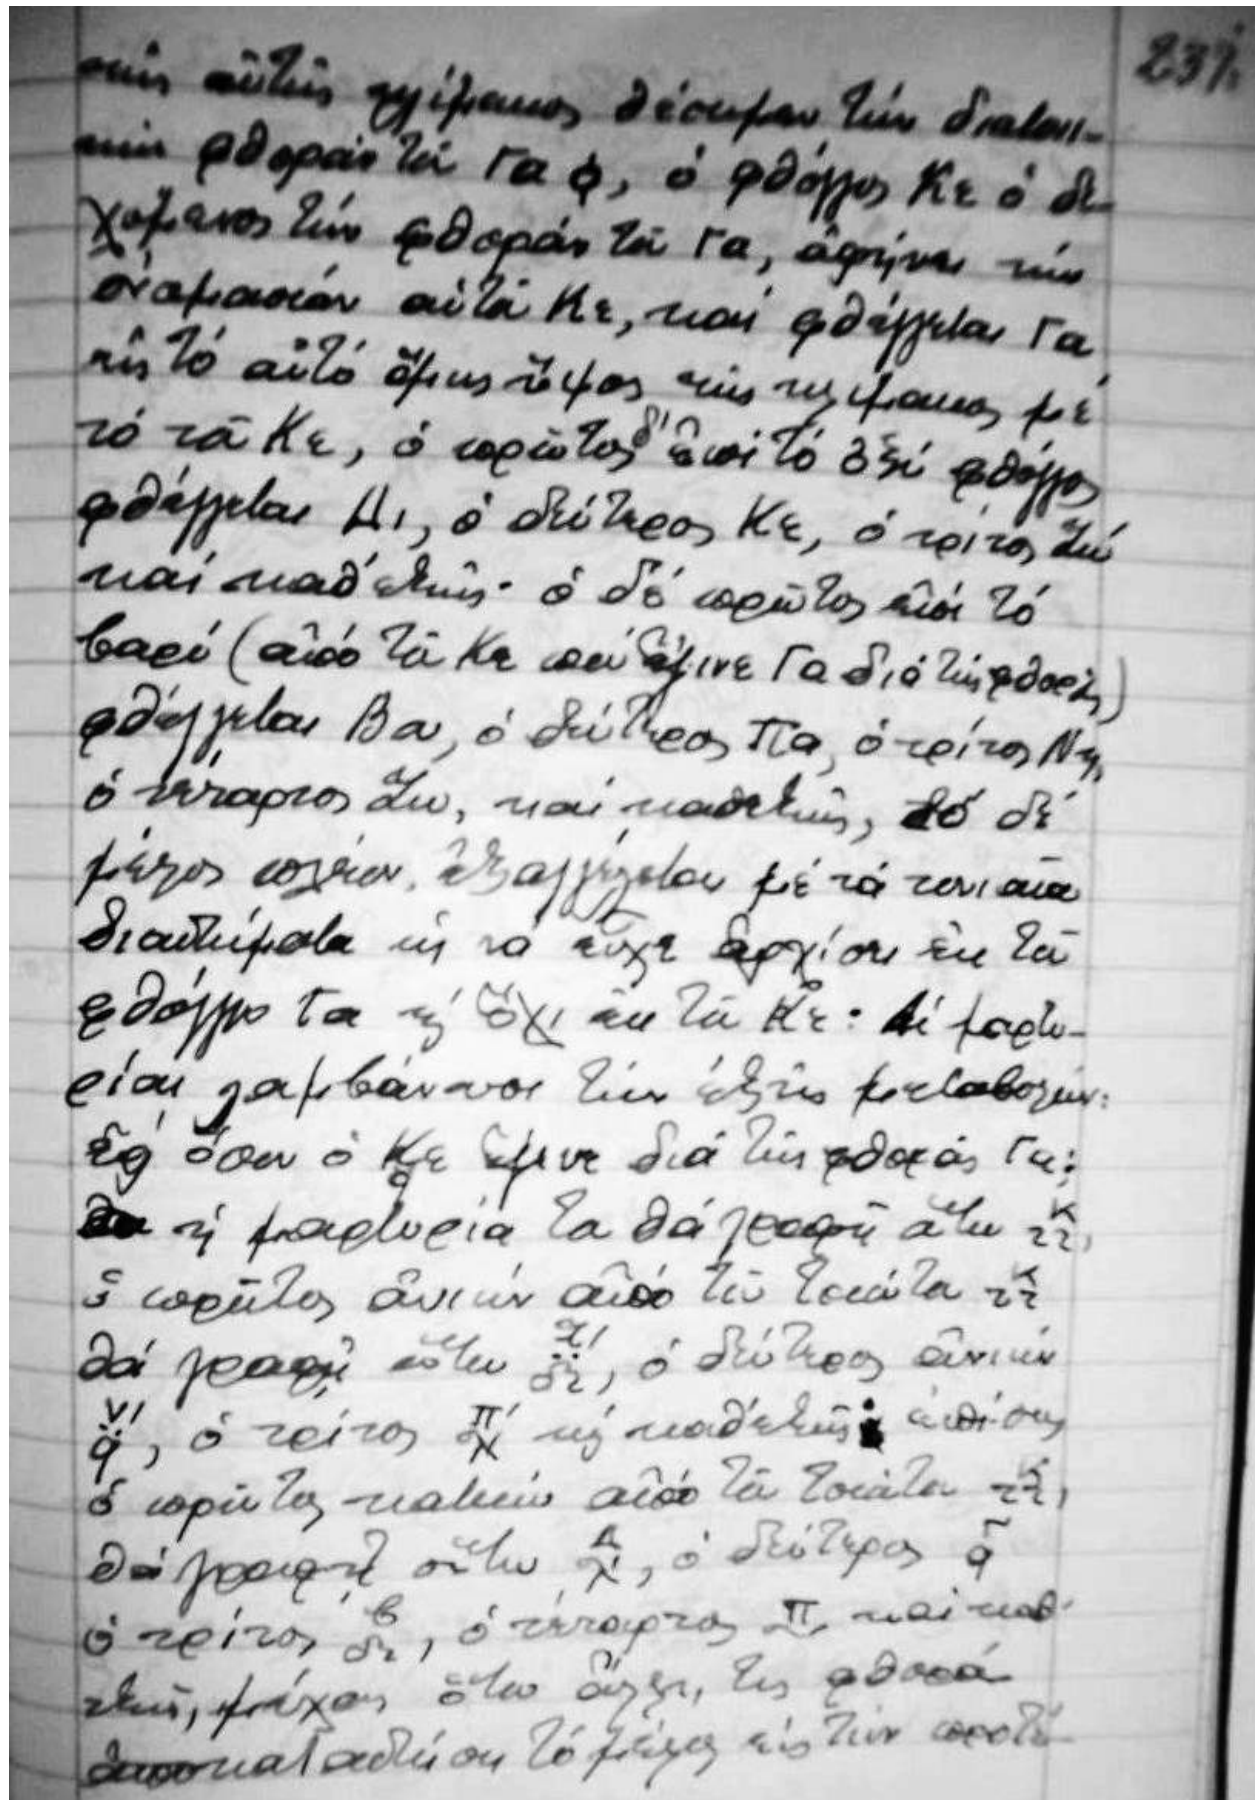 237.
τῆς αὐτῆς κλίμακος θέσωμεν τήν διατονι-
κήν φθοράν τοῦ Γα, ὁ φθόγγος Κε ὁ δε-
χόμενος τήν φθοράν τοῦ Γα, ἀφήνει τήν
ὀνομασίαν αὐτοῦ Κε, καί φθέγγεται Γα
εἰς τό αὐτό ὅμως ὕψος τῆς κλίμακος μέ
τό τοῦ Κε, ὁ πρῶτος δ' ἐπί τό ὀξύ φθόγγος
φθέγγεται Δι, ὁ δεύτερος Κε, ὁ τρίτος Ζω
καί καθεξῆς· ὁ δέ πρῶτος ἐπί τό
βαρύ (ἀπό τοῦ Κε πού ἔγινε Γα διά τῆς φθορᾶς)
φθέγγεται Βου, ὁ δεύτερος Πα, ὁ τρίτος Νη,
ὁ τέταρτος Ζω, καί καθεξῆς, τό δέ
μέλος πλέον, ἐξαγγέλεται μέ τά τονιαῖα
διαστήματα ὡς νά εἶχε ἀρχίσει ἐκ τοῦ
φθόγγου Γα κ' ὄχι ἐκ τοῦ Κε: Αἱ μαρτυ-
ρίαι λαμβάνουσι τήν ἑξῆς μεταβολήν:
ἐφ' ὅσον ὁ Κε ἔγινε διά τῆς φθορᾶς Γα:
ἡ μαρτυρία του θά γραφῇ οὕτω κ,
ὁ πρῶτος ἀνιών ἀπό τοῦ τοιούτου κ
θά γραφῇ οὕτω ζ', ὁ δεύτερος ἀνιών
ν', ὁ τρίτος π' κ' καθεξῆς· ἐπίσης
ὁ πρῶτος κατιών ἀπό τοῦ τοιούτου κ,
θά γραφῇ οὕτω Δ, ὁ δεύτερος Γ
ὁ τρίτος β, ὁ τέταρτος π, καί καθ-
εξῆς, μέχρις ὅτου ἄλλη τις φθορά
καταστήσῃ τό μέλος εἰς τήν προτέ-